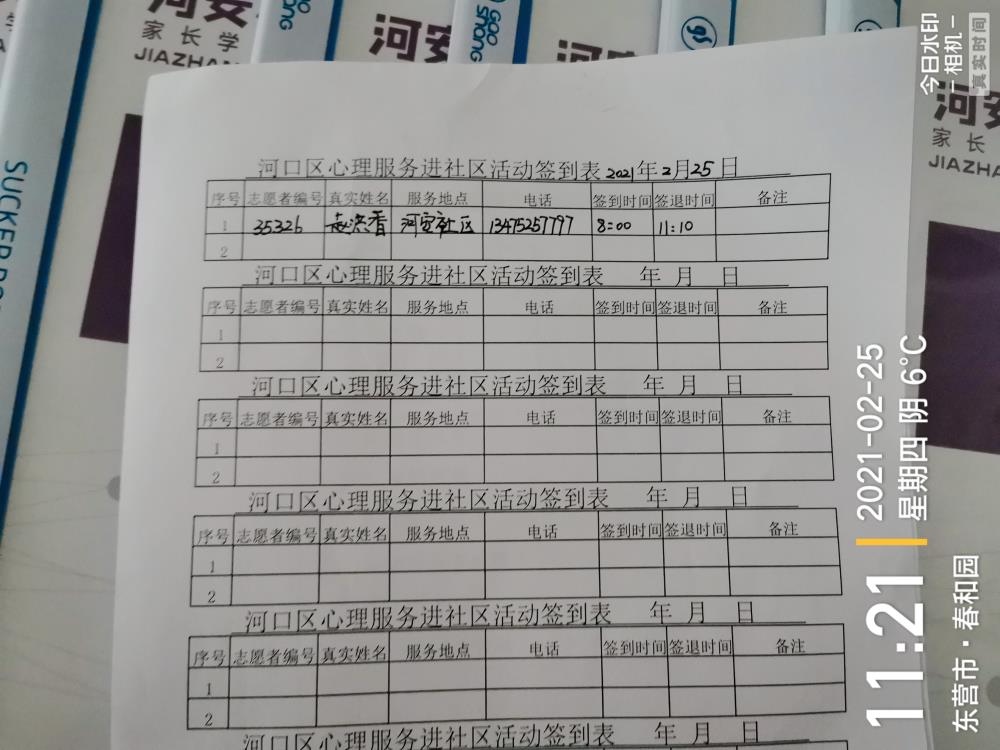 河安
家长学
JIAZHAN
GAO
SHANG
河安
河安
家长
JIAZHA
SUCKER
今日水印
相机
真实时间
河口区心理服务进社区活动签到表 2021年2月25日
序号 志愿者编号 真实姓名 服务地点 电话 签到时间 签退时间 备注
1 35326 赵洪香 河安社区 13475257797 8:00 11:10
2
河口区心理服务进社区活动签到表 年 月 日
序号 志愿者编号 真实姓名 服务地点 电话 签到时间 签退时间 备注
1
2
河口区心理服务进社区活动签到表 年 月 日
序号 志愿者编号 真实姓名 服务地点 电话 签到时间 签退时间 备注
1
2
河口区心理服务进社区活动签到表 年 月 日
序号 志愿者编号 真实姓名 服务地点 电话 签到时间 签退时间 备注
1
2
河口区心理服务进社区活动签到表 年 月 日
序号 志愿者编号 真实姓名 服务地点 电话 签到时间 签退时间 备注
1
2
河口区心理服务进社区活动签到表 年 月 日
11:21
2021-02-25
星期四 阴 6°C
东营市·春和园